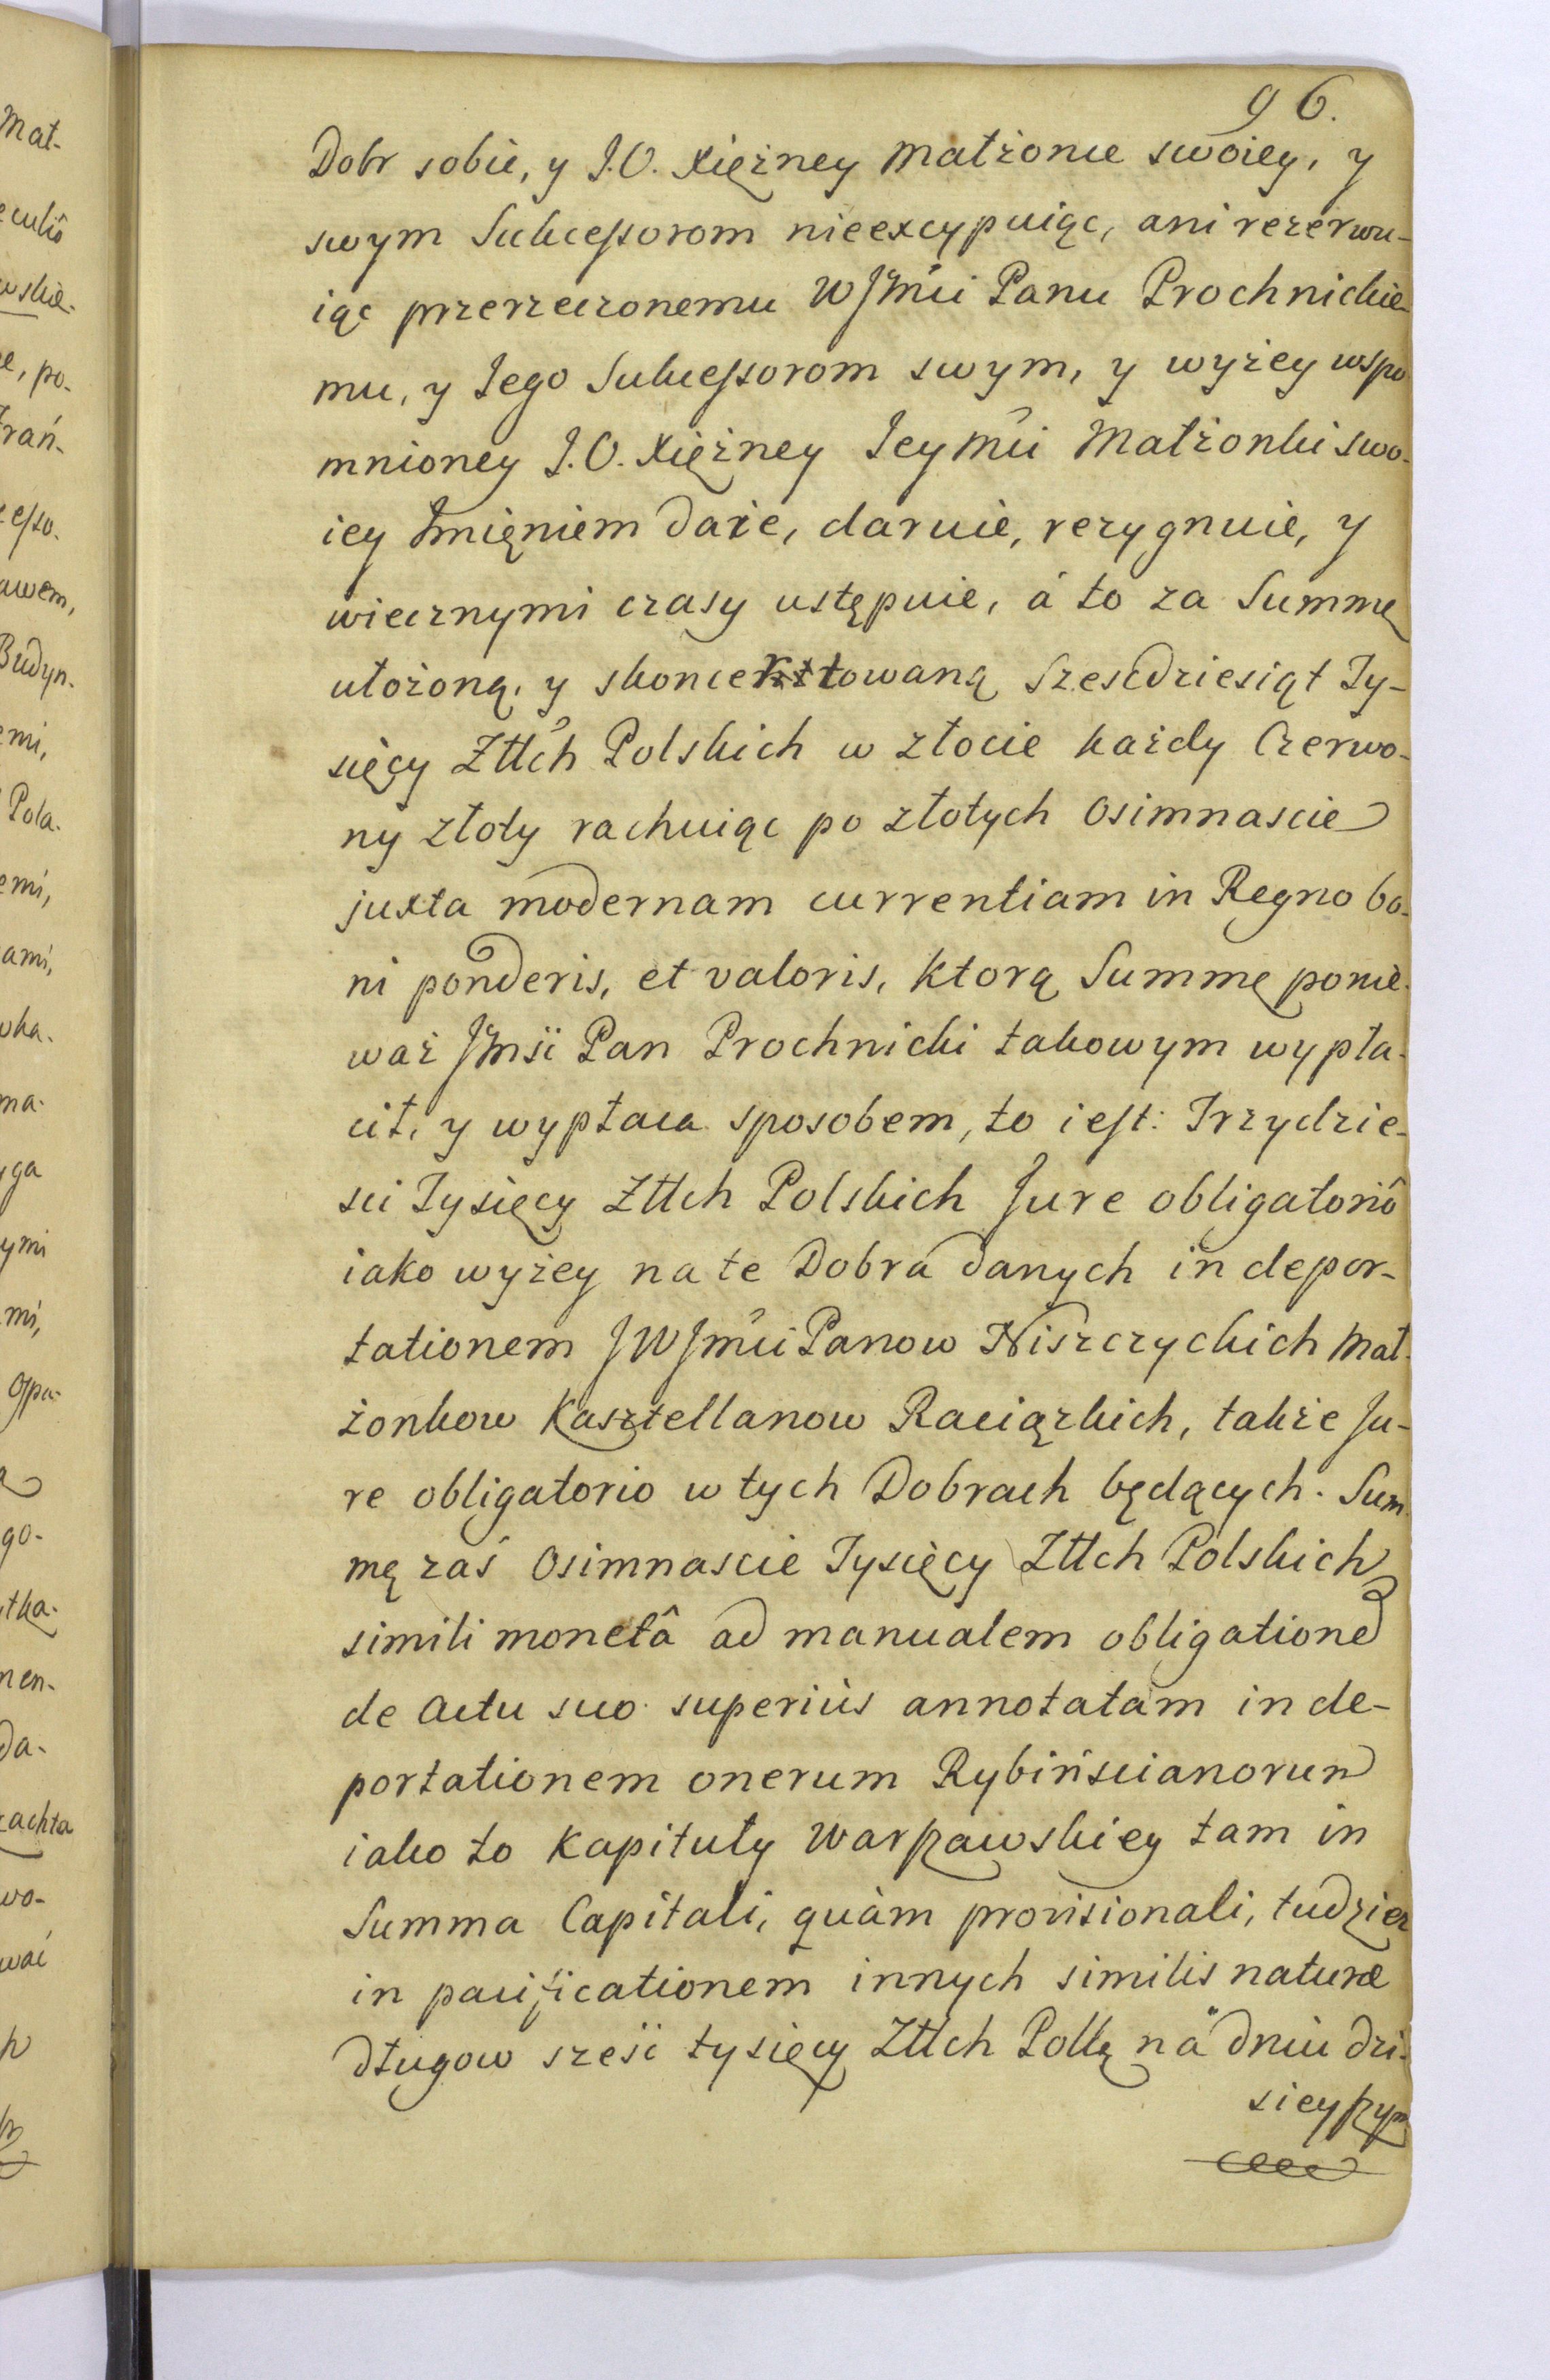 96.
Dobr sobie, y J.O. Xiężney Małżonce swoiey, y
swym Sukcessorom nieexcypuiąc, ani rezerwu-
iąc przerzeczonemu WJmci Panu Prochnickie-
mu, y Jego Sukcessorom swym, y wyżey wspo
mnioney J.O. Xiężney Jeymci Małżonki swo-
iey Imięniem daie, daruie, rezygnuie, y
wiecznymi czasy ustępuie, á to za Summę
ułożoną, y skoncertowaną Szescdziesiąt Ty-
sięcy Zttch Polskich w złocie każdy Czerwo-
ny złoty rachuiąc po złotych Osimnascie
juxta modernam currentiam in Regno bo-
ni ponderis, et valoris, ktorą Summę ponie-
waż Jmsci Pan Prochnicki takowym wypła-
cił, y wypłaca sposobem, to iest: Trzydzie-
sci Tysięcy Zttch Polskich Jure obligatoriô
iako wyżey na te Dobra danych in depor-
tationem JWJmci Panow Niszczyckich Mał-
żonkow Kasztellanow Raciązkich, także Ju-
re obligatorio w tych Dobrach będących. Sum-
mę zaś Osimnascie Tysięcy Zttch Polskich
simili monetâ ad manualem obligationem
de Actu suo superiùs annotatam in de-
portationem onerum Rybińscianorum
iako to Kapituły Warszawskiey tam in
Summa Capitali, quàm provisionali, tudzież
in pacificationem innych similis naturæ
długow sześć tysięcy Zttch Polkę na dniu dzi-
sieyszym